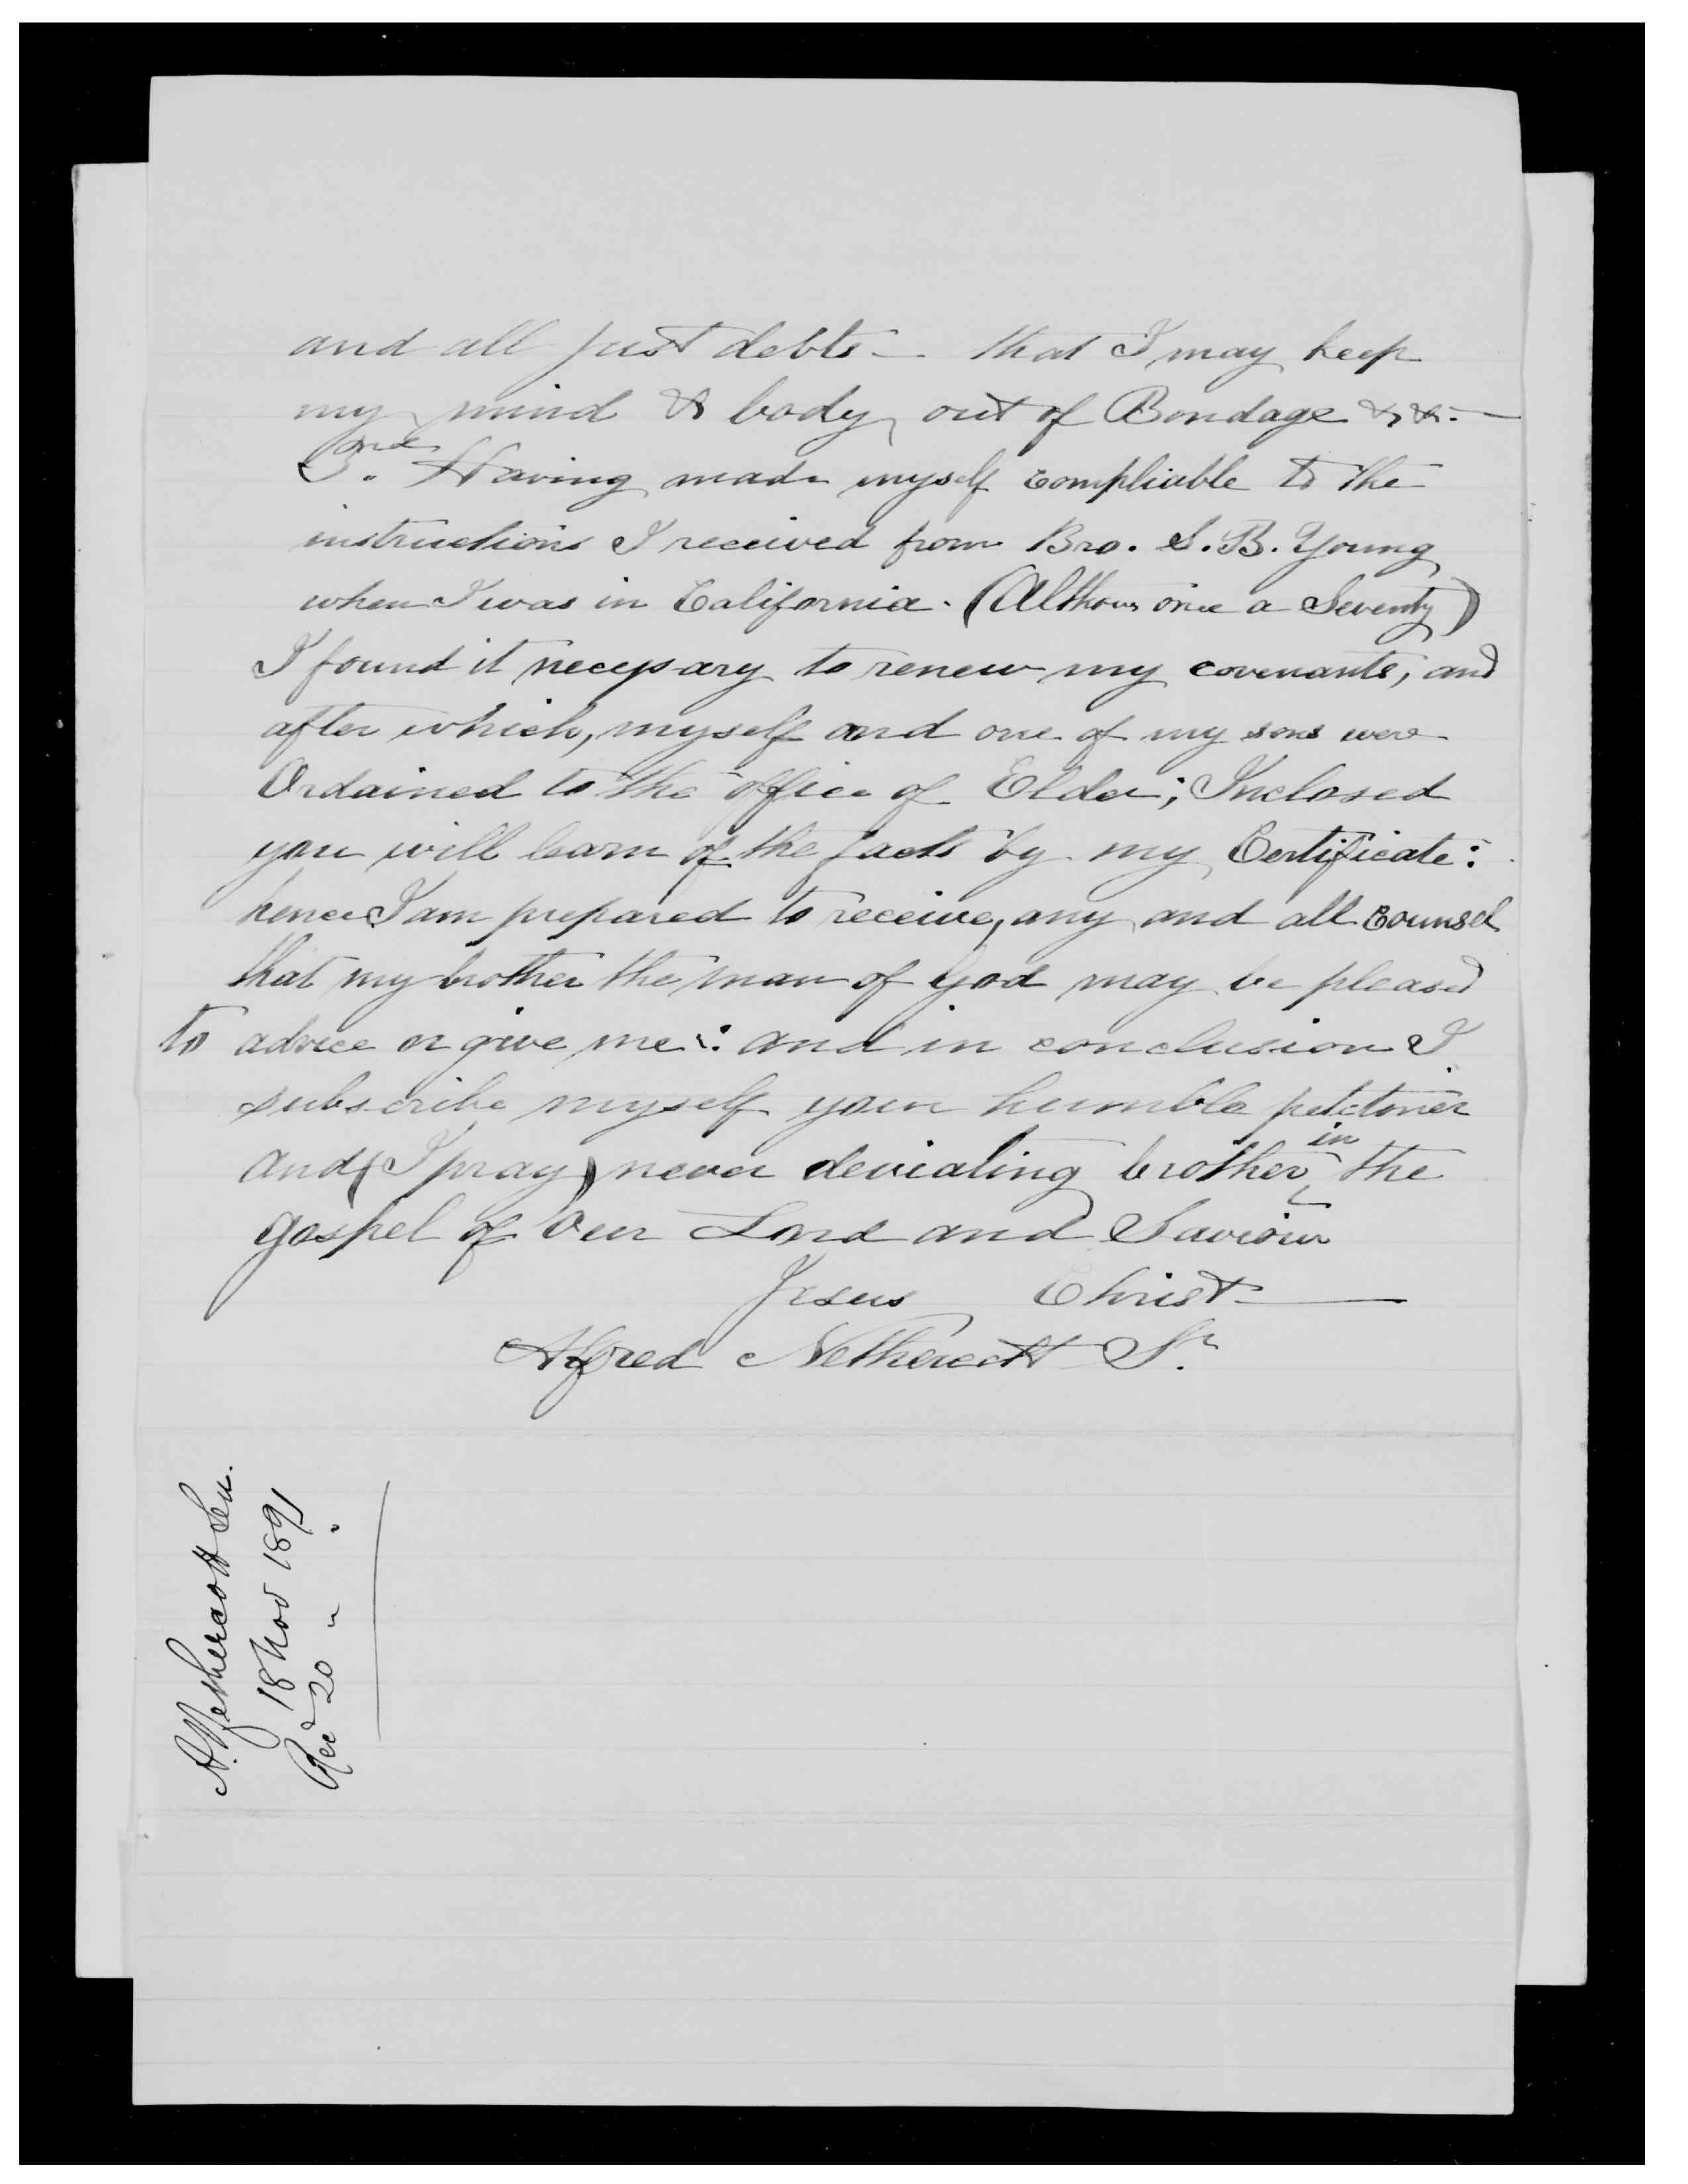 and all just debts — that I may keep
my mind & body out of Bondage &, &. —
3.rd Having made myself compliable to the
instructions I received from Bro. S. B. Young
when I was in California. (Althou once a Seventy)
I found it necessary to renew my covenants; and
after which, myself and one of my sons were
Ordained to the office of Elder; Inclosed
you will learn of the facts by my Certificate:
hence I am prepared to receive, any and all counsel
that my brother the man of God may be pleased
to advice or give me: and in conclusion I
subscribe myself your humble petetoner
and (I pray) never deviating brother in the
gospel of Our Lord and Saviour
Jesus Christ —
Alfred Nethercott Sr.
A. Nethercott Sen.
18 Nov 1891
Recd 20 " "